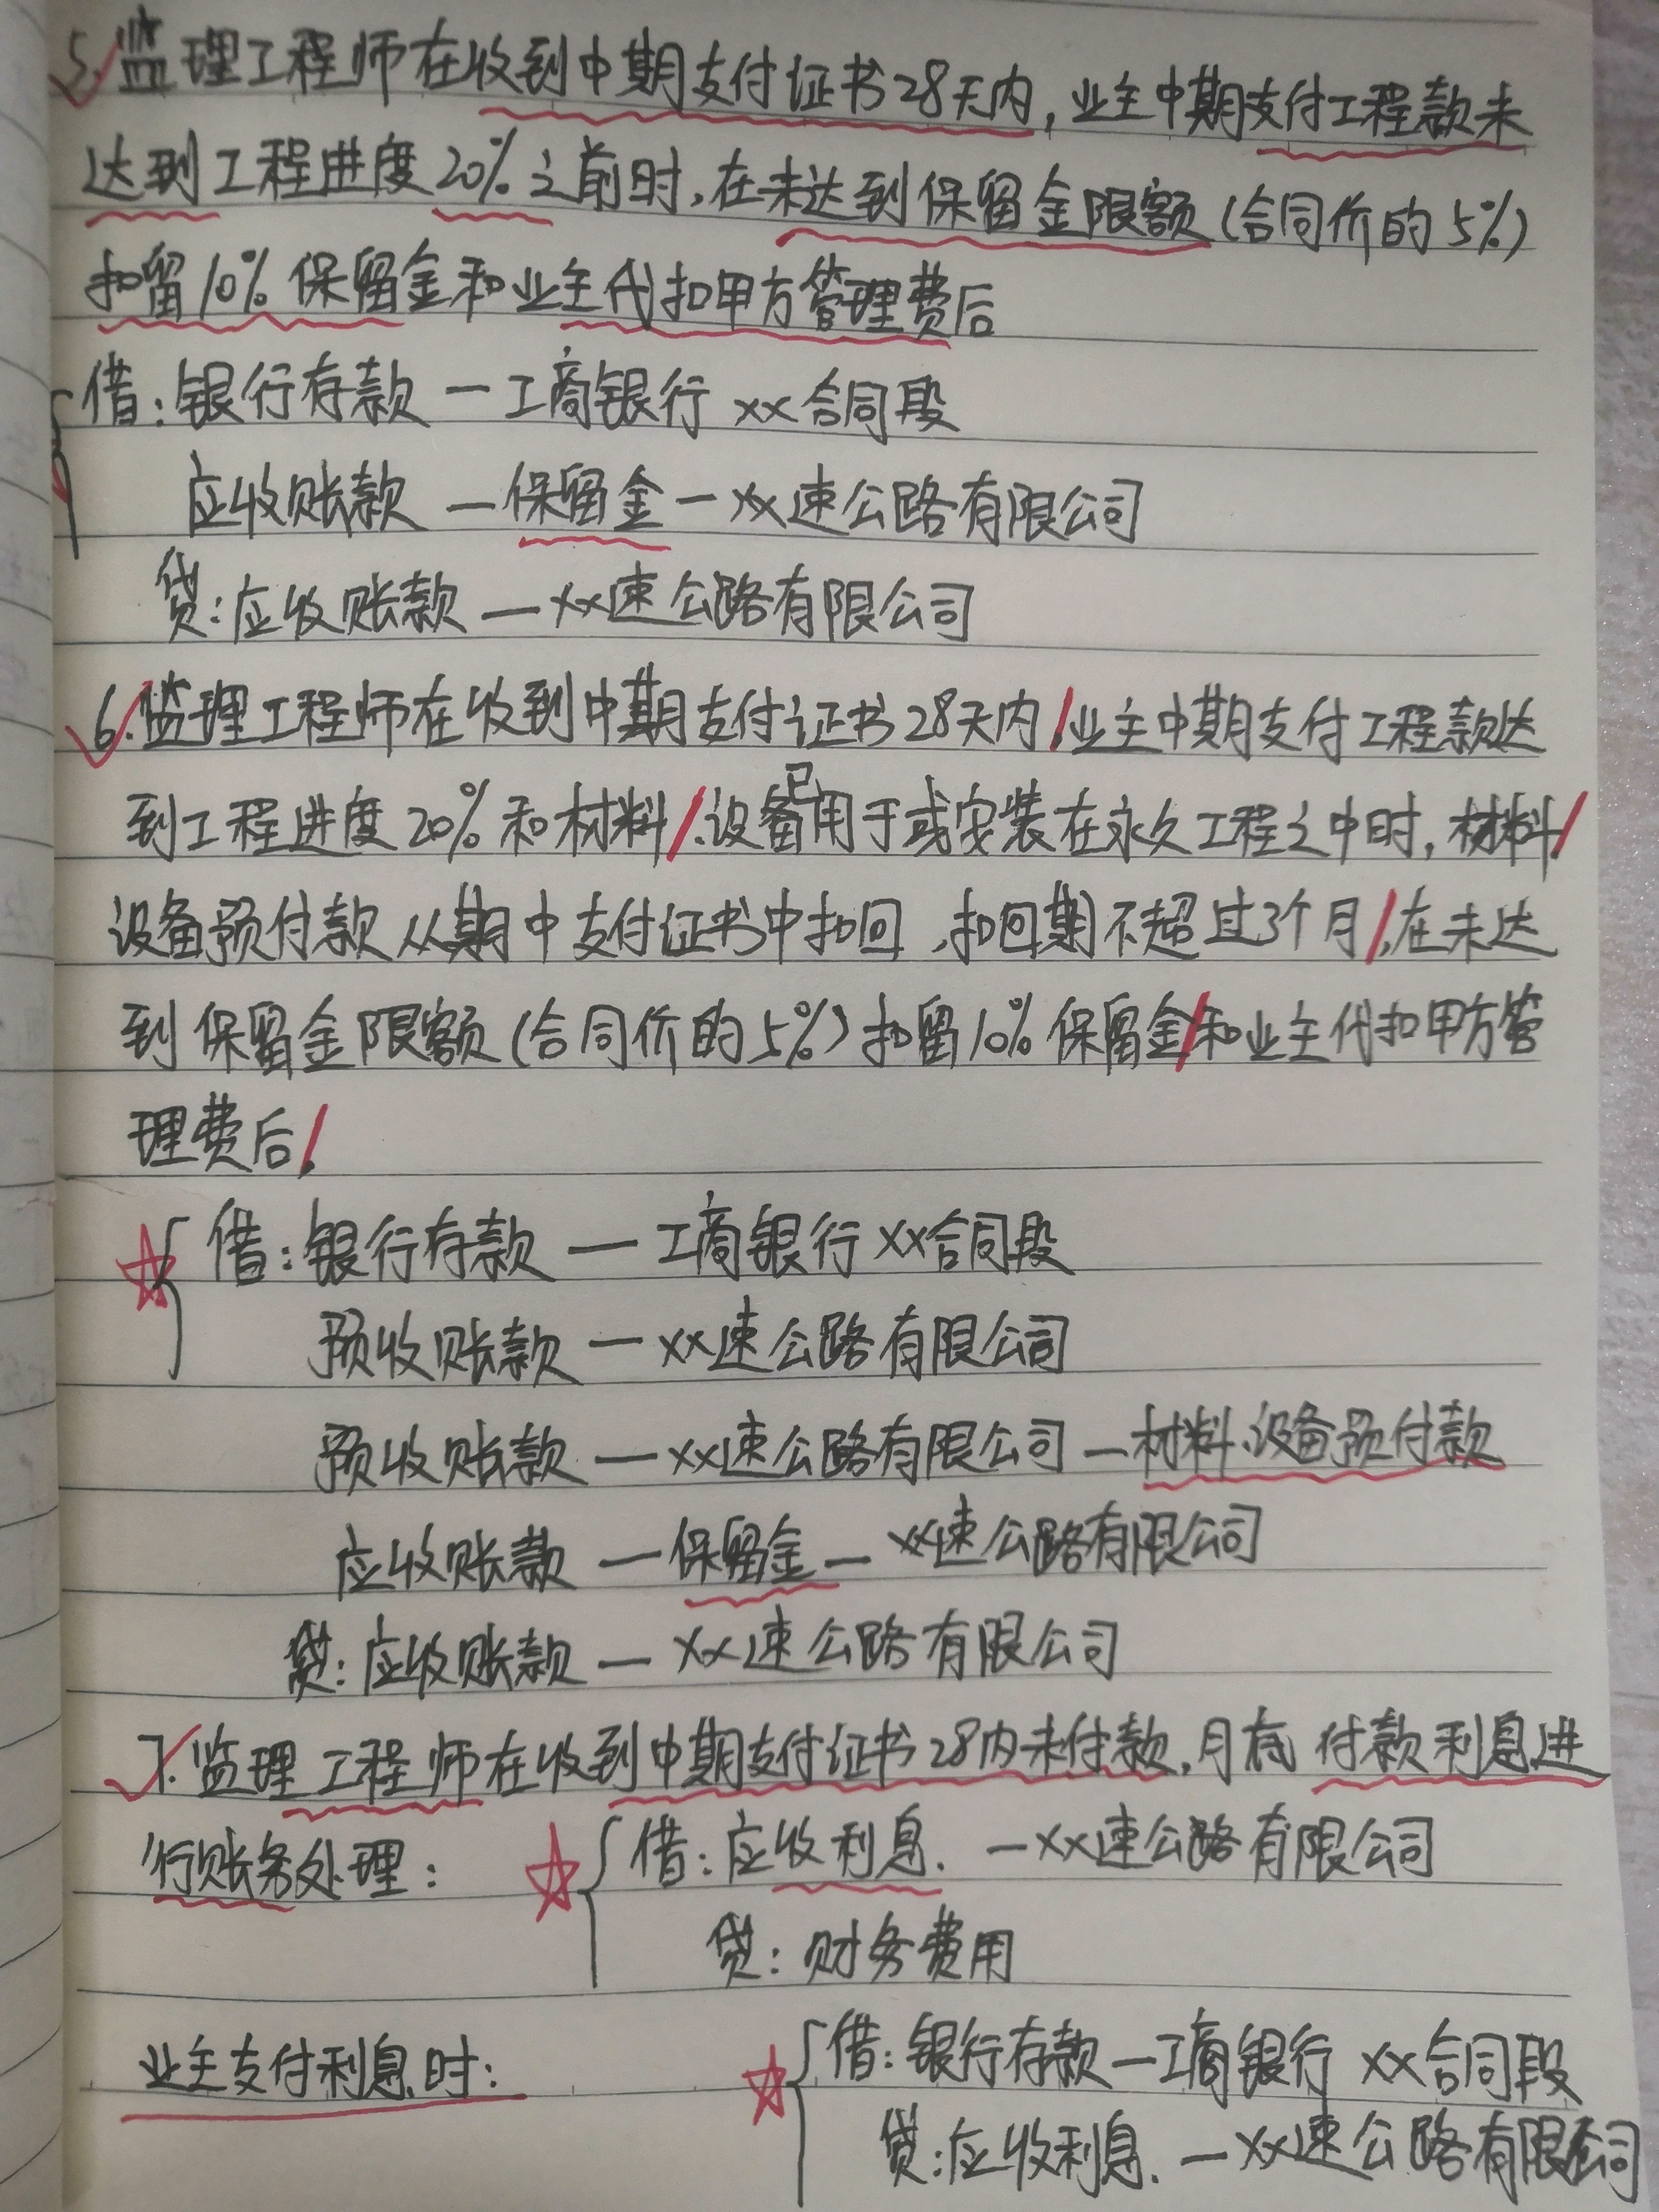 5.监理工程师在收到中期支付证书28天内,业主中期支付工程款未
达到工程进度20%之前时,在未达到保留金限额(合同价的5%)
扣留10%保留金和业主代扣甲方管理费后
借:银行存款—工商银行××合同段
应收账款—保留金—××速公路有限公司
贷:应收账款—××速公路有限公司
6.监理工程师在收到中期支付证书28天内,业主中期支付工程款达
到工程进度20%和材料、设备已用于或安装在永久工程之中时,材料、
设备预付款从期中支付证书中扣回,扣回期不超过3个月,在未达
到保留金限额(合同价的5%)扣留10%保留金和业主代扣甲方管
理费后,
借:银行存款—工商银行××合同段
预收账款—××速公路有限公司
预收账款—××速公路有限公司—材料、设备预付款
应收账款—保留金—××速公路有限公司
贷:应收账款—××速公路有限公司
7.监理工程师在收到中期支付证书28内未付款,月底付款利息进
行账务处理: 借:应收利息.—××速公路有限公司
贷:财务费用
业主支付利息时: 借:银行存款—工商银行 ××合同段
贷:应收利息.—××速公路有限公司